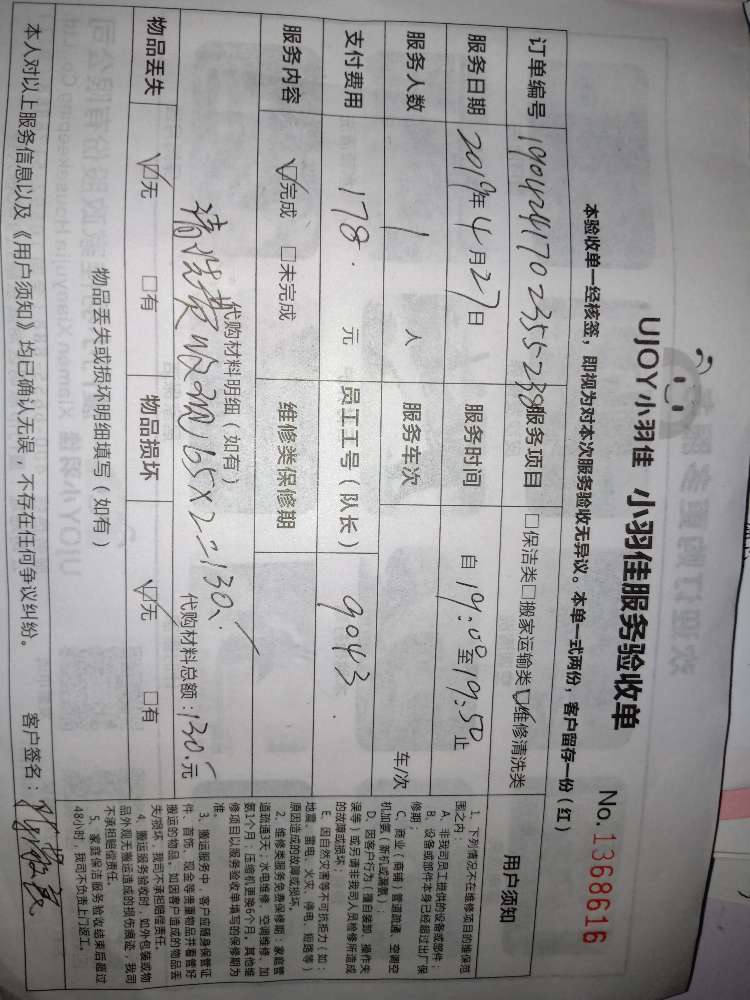 UJOY小羽佳 小羽佳服务验收单
No.1368616
本验收单一经核签，即视为对本次服务验收无异议。本单一式两份，客户留存一份（红）
订单编号 190424170235523 服务项目 □保洁类□搬家运输类☑维修清洗类
服务日期 2019年4月27日 服务时间 自19:00至19:50止
服务人数 1 人 服务车次 车/次
支付费用 178. 元 员工工号（队长） 9043
服务内容 ☑完成 □未完成 维修类保修期
代购材料明细（如有）
清洗费 165X2=130. 代购材料总额：130.元
物品丢失 ☑无 □有 物品损坏 ☑无 □有
物品丢失或损坏明细填写（如有）
本人对以上服务信息以及《用户须知》均已确认无误，不存在任何争议纠纷。 客户签名：
用户须知
1、下列情况不在维修项目的维保范
围之内：
A、非我司员工提供的设备或部件；
B、设备或部件本身已经超过出厂保
修期；
C、商业（商铺）管道疏通、空调空
机加氨（新机或漏氨）；
D、因客户行为（擅自装卸、操作失
误等）或另请非我司人员检修所造成
的故障或损坏；
E、因自然灾害等不可抗拒力（如：
地震、雷电、火灾、停电、短路等）
原因造成的故障或损坏。
2、维修类服务免费保修期：家庭管
道疏通3天；水电维修、空调维修、加
氨1个月；压缩机更换6个月。其他维
修项目以服务验收单填写的保修期为
准。
3、搬运服务中，客户应随身保管证
件、首饰、现金等贵重物品并看管好
搬运的物品，如因客户造成的物品丢
失/损坏，我司不承担赔偿责任。
4、搬运服务验收时，如外包装或物
品外观无搬运造成的损伤痕迹，我司
不承担赔偿责任。
5、家庭保洁服务验收结束后超过
48小时，我司不负责上门返工。